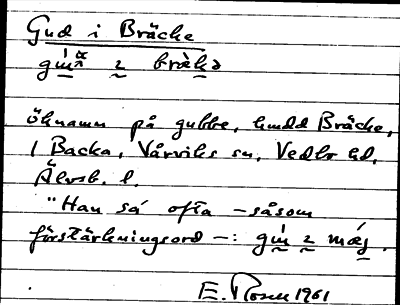 Gud i Bräcke
gu̇n ɩ bràkə
öknamn på gubbe, hmdd Bräcke,
1 Backa, Vårviks sn, Vedbo hd,
Älvsb. l.
"Han sa ofta – såsom
förstärkningsord –: gu̇n ɩ mæj.
E. Rosen 1961